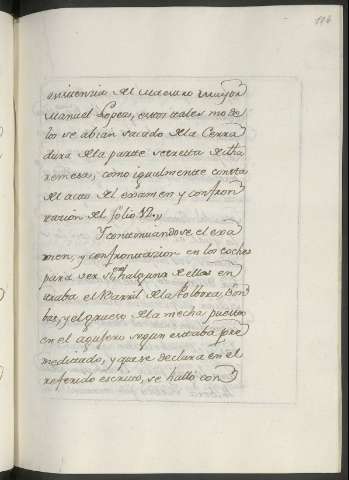 186
asistencia del Maestro Mayor
Manuel Lopez, en los cuales mode
los se abian sacado de la Cerra
dura de la parte secreta de dha
remesa, como igualmente consta
del acto del exâmen y confron
tacion del folio 12.,,
Y continuandose el exa
men, y confrontacion en los coches
para ver si en alguno de ellos en
traba el Barril de la Polbora, Bom
bas, y el grueso de la mecha puestos
en el agujero segun estaba pre
meditado, y que se declara en el
referido escrito, se halló con